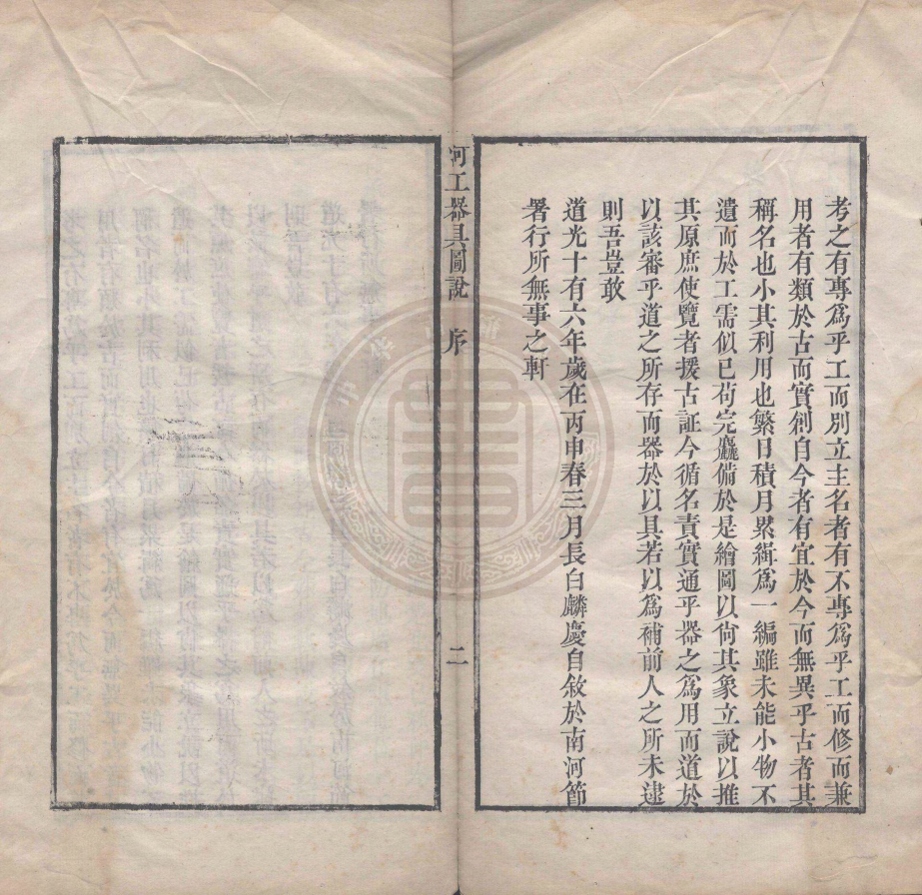 考之有專爲乎工而別立主名者有不專爲乎工而修而兼
用者有類於古而實創自今者有宜於今而無異乎古者其
稱名也小其利用也繁日積月累緝爲一編雖未能小物不
遺而於工需似已苟完麤備於是繪圖以尙其象立說以推
其原庶使覽者援古証今循名責實通乎器之爲用而道於
以該審乎道之所存而器於以具若以爲補前人之所未逮
則吾豈敢
道光十有六年歲在丙申春三月長白麟慶自敘於南河節
署行所無事之軒
河工器具圖說 序 二